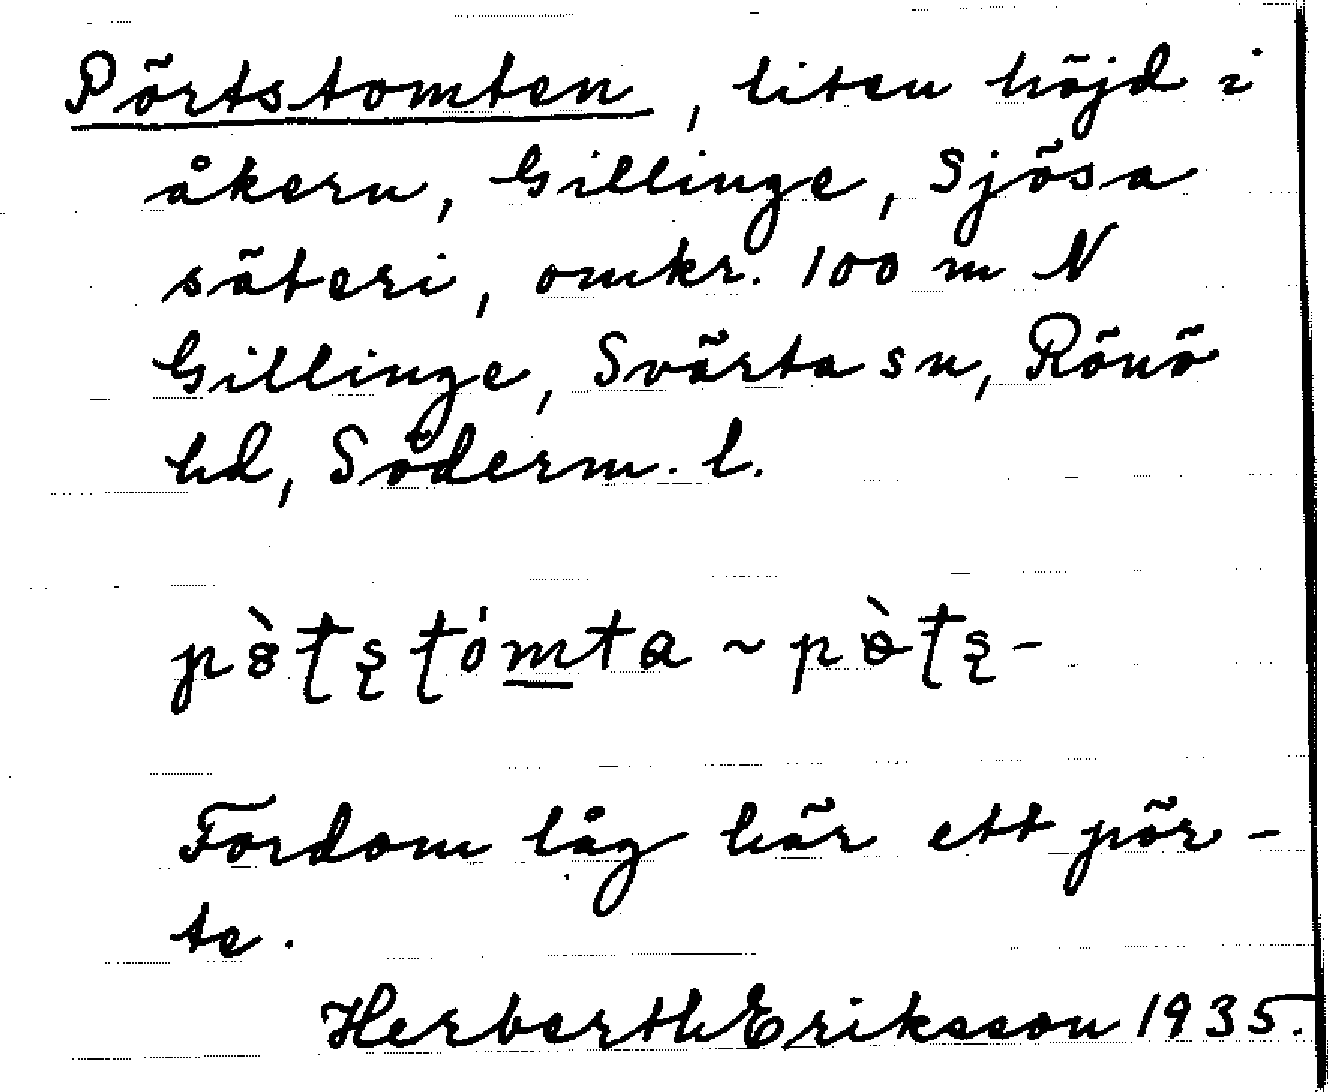 Pörtstomten, liten höjd i
åkern, Gillinge, Sjösa
säteri, omkr. 100 m N
Gillinge, Svärta sn, Rönö
hd, Söderm. l.
Fordom låg här ett pör-
te.
Herberth Eriksson 1935.